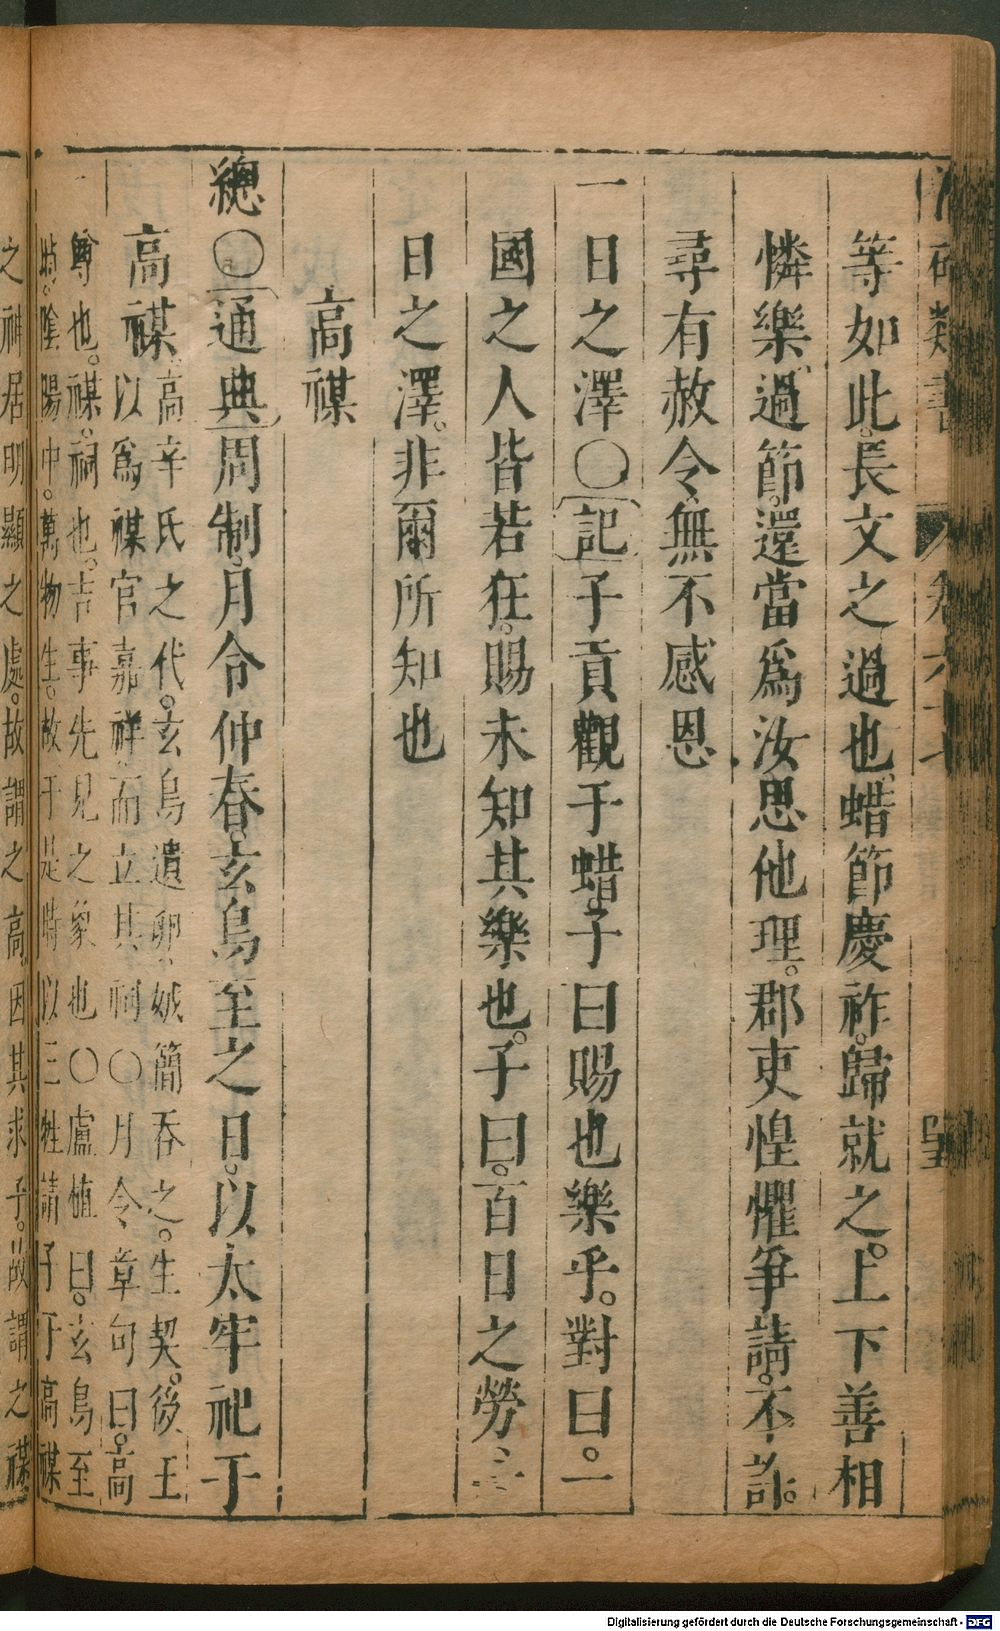 等如此。長文之過也、蜡節慶祚。歸就之。上下善相
憐樂、過節。還當爲汝思他理。郡吏惶懼爭請。不許。
尋有赦令、無不感恩
一日之澤〇記子貢觀于蜡。子曰賜也。樂乎。對曰。一
國之人皆若狂。賜未知其樂也。子曰。百日之勞、一
日之澤。非爾所知也
高禖
總〇通典周制。月令仲春。玄鳥至之日。以太牢祀于
高禖
高辛氏之代。玄鳥遺卵、娀簡吞之。生契。後王
以爲禖官嘉祥。而立其祠〇月令、章句曰。高
尊也。禖。祠也。吉事先見之象也〇盧植曰。玄鳥至
時。陰陽中。萬物生。故于是時以三牲請子于高禖
之神居明顯之處。故謂之高。因其求子。故謂之禖
Digitalisierung gefördert durch die Deutsche Forschungsgemeinschaft - DFG